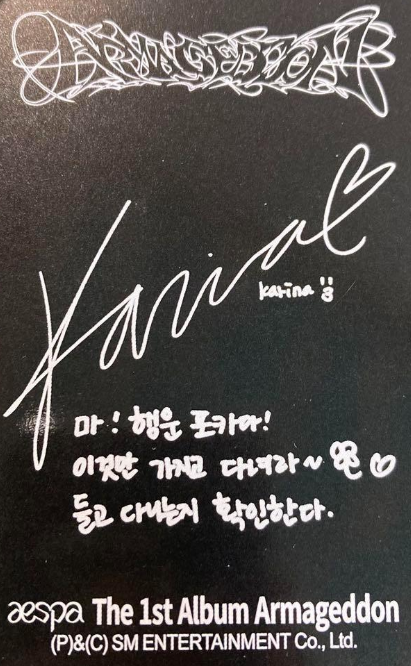 ARMAGEDDON
Karina
karina
마! 행운 포카다!
이것만 가지고 다녀라~
들고 다니는지 확인한다.
aespa The 1st Album Armageddon
(P)&(C) SM ENTERTAINMENT Co., Ltd.